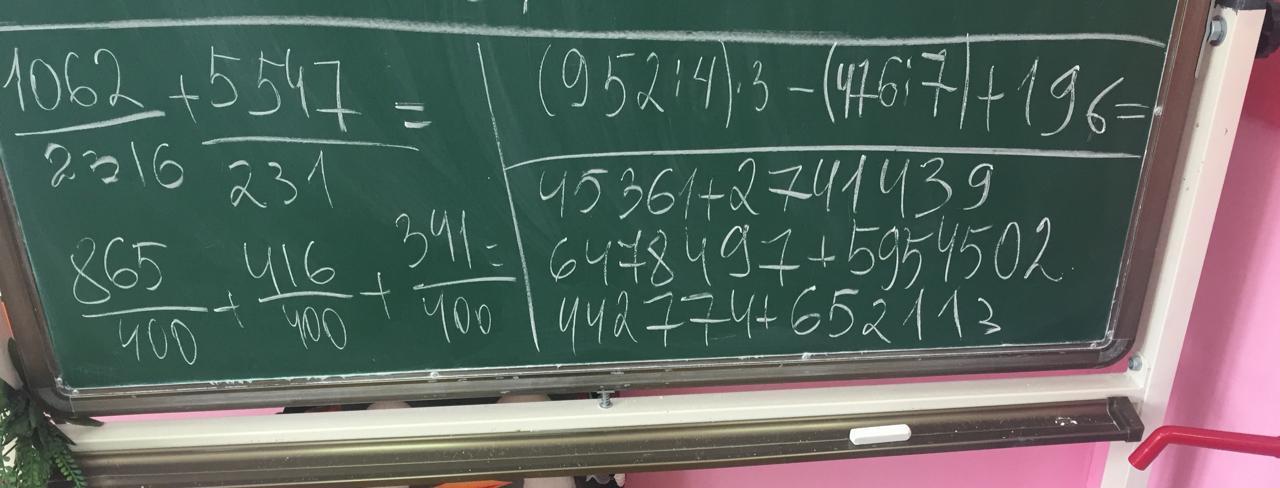 1062/2316 + 5547/231 =
865/400 + 416/400 + 341/400 =
(952:4)·3-(476:7)+196=
45361+2741439
6478497+5954502
442774+652113